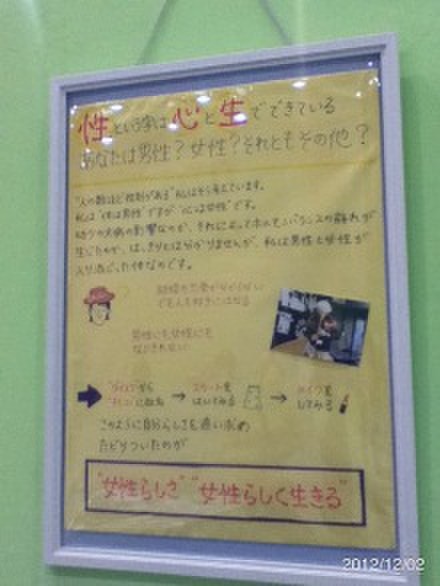 性という字は心と生でできている
あなたは男性?女性?それともその他?
"人の数ほど性別がある"私はそう考えています。
私は"体は男性"ですが"心は女性"です。
幼少の大病の影響なのか、それによってホルモンバランスの崩れが
生じたのか、はっきりとは分かりませんが、私は男性と女性が
入り混じった体なのです。
でも人を好きにはなる
男性にも女性にも
なりきれない
から
スカートを
はいてみる
メイクを
してみる
このように自分らしさを追い求め
たどりついたのが
"女性らしさ""女性らしく生きる"
2012/12/02